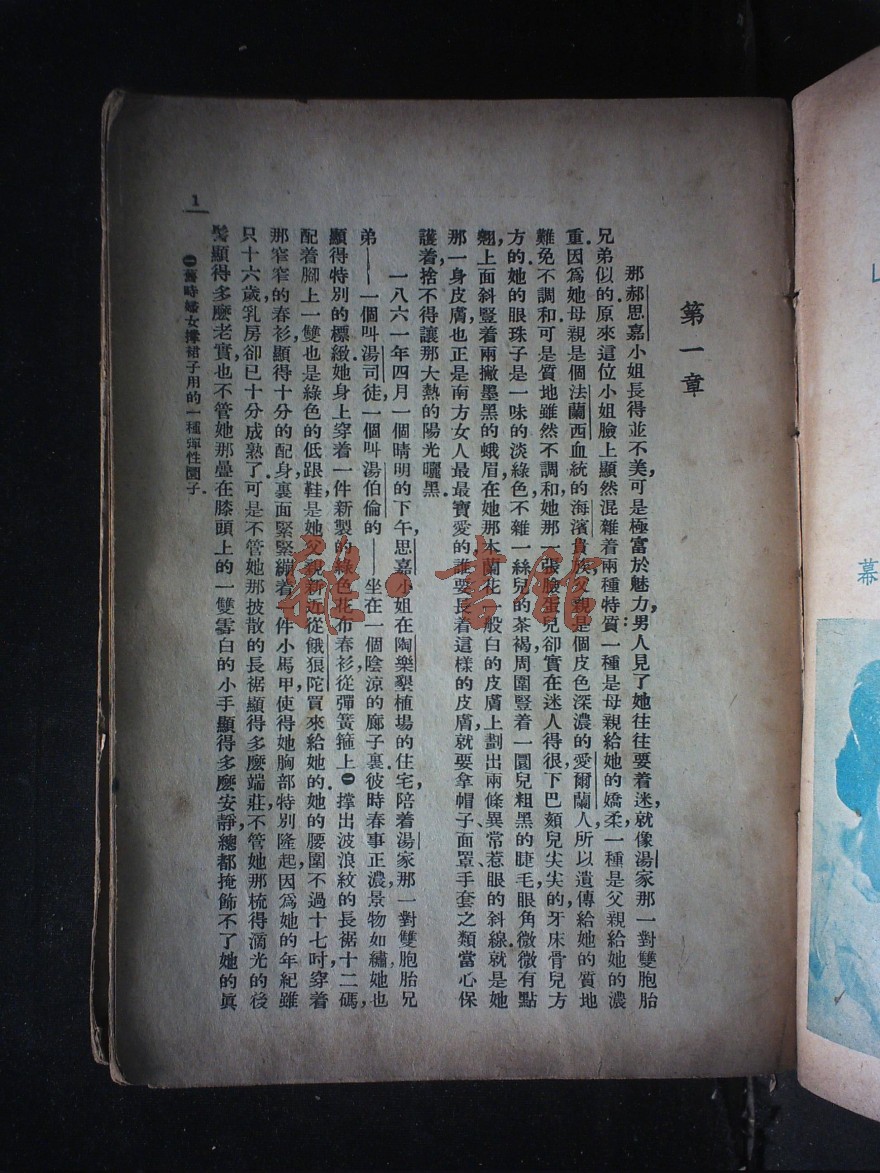 第一章
那郝思嘉小姐長得並不美,可是極富於魅力;男人見了她往往要着迷,就像湯家那一對雙胞胎
兄弟似的.原來這位小姐臉上顯然混雜着兩種特質:一種是母親給她的嬌柔,一種是父親給她的濃
重.因爲她母親是個法蘭西血統的海濱貴族,父親是個皮色深濃的愛爾蘭人,所以遺傳給她的質地
難免不調和.可是質地雖然不調和,她那一張臉蛋兒卻實在迷人得很,下巴頦兒尖尖的,牙床骨兒方
方的.她的眼珠子是一味的淡綠色,不雜一絲兒的茶褐,周圍豎着一圜兒粗黑的睫毛,眼角微微有點
翹,上面斜豎着兩撇墨黑的蛾眉,在她那木蘭花一般白的皮膚上劃出兩條異常惹眼的斜線.就是她
那一身皮膚,也正是南方女人最最寶愛的,誰要長着這樣的皮膚,就要拿帽子、面罩、手套之類當心保
護着,捨不得讓那大熱的陽光曬黑.
一八六一年四月一個晴明的下午,思嘉小姐在陶樂墾植場的住宅,陪着湯家那一對雙胞胎兄
弟——一個叫湯司徒,一個叫湯伯倫的——坐在一個陰涼的廊子裏.彼時春事正濃,景物如繡,她也
顯得特別的標緻.她身上穿着一件新製的綠色花布春衫,從彈簧箍上㊀撐出波浪紋的長裾十二碼,
配着脚上一雙也是綠色的低跟鞋,是她父親新近從餓狼陀買來給她的.她的腰圍不過十七吋,穿着
那窄窄的春衫,顯得十分的配身.裏面緊緊繃着一件小馬甲,使得她胸部特別隆起,因爲她的年紀雖
只十六歲,乳房卻已十分成熟了.可是不管她那披散的長裾顯得多麼端莊,不管她那梳得滴光的後
髻顯得多麼老實,也不管她那疊在膝頭上的一雙雪白的小手顯得多麼安靜,總都掩飾不了她的眞
㊀舊時婦女撐裙子用的一種彈性圈子.
1
雜·書館
幕